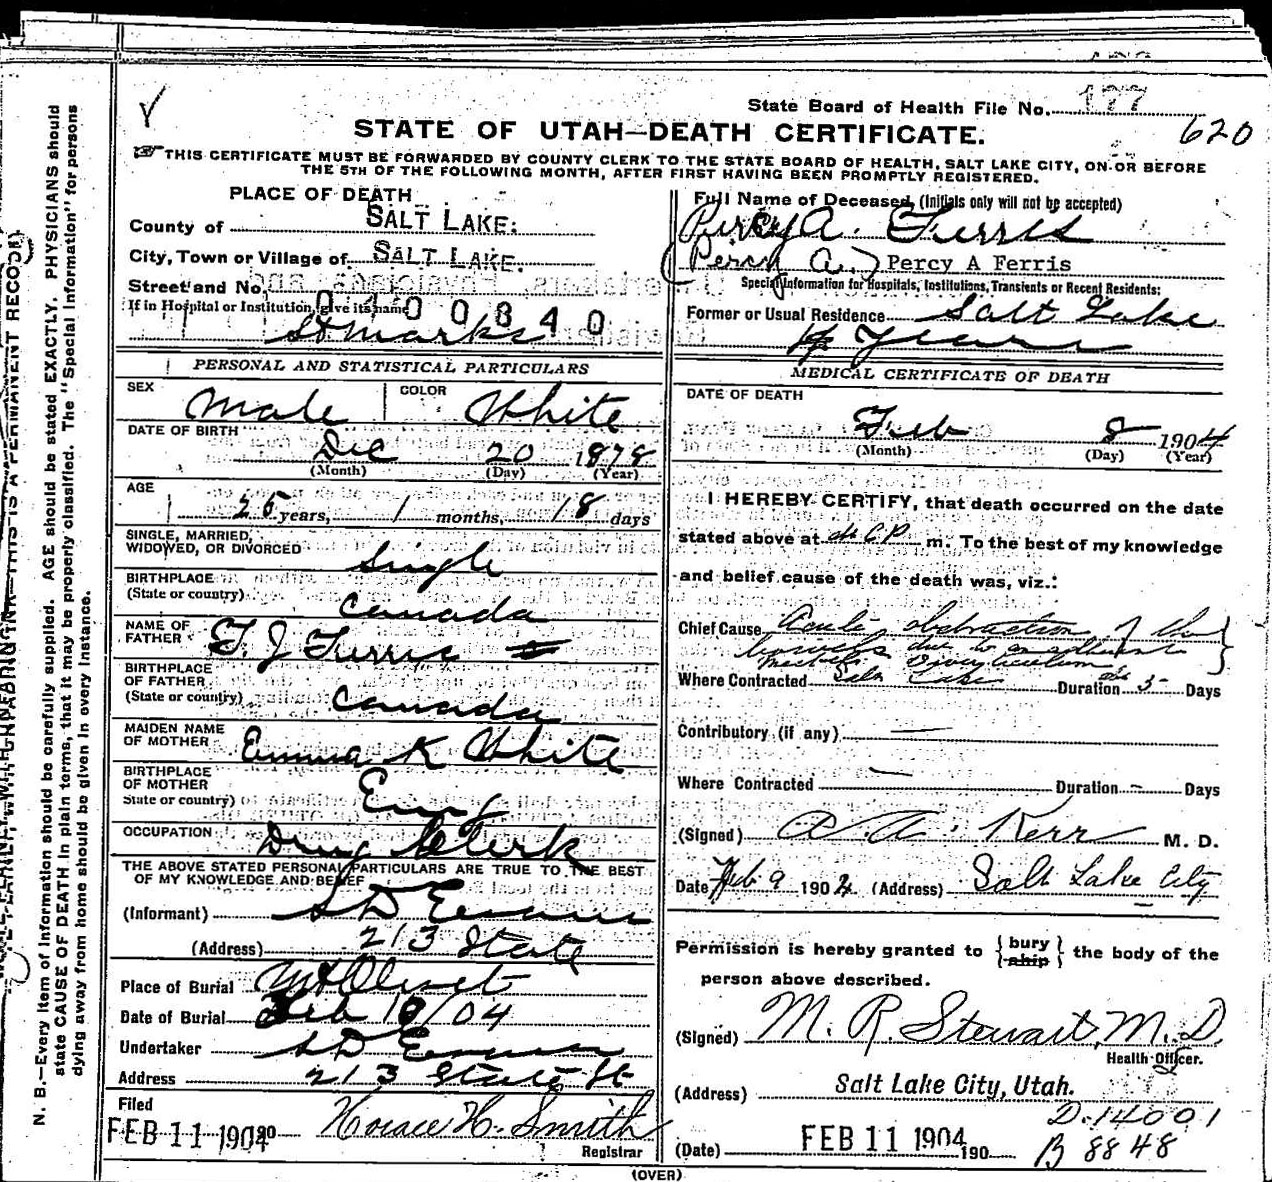 State Board of Health File No. 177
620
STATE OF UTAH—DEATH CERTIFICATE.
THIS CERTIFICATE MUST BE FORWARDED BY COUNTY CLERK TO THE STATE BOARD OF HEALTH, SALT LAKE CITY, ON OR BEFORE
THE 5TH OF THE FOLLOWING MONTH, AFTER FIRST HAVING BEEN PROMPTLY REGISTERED.
PLACE OF DEATH
County of SALT LAKE:
City, Town or Village of SALT LAKE.
Street and No.
If in Hospital or Institution, give its name
St Marks
PERSONAL AND STATISTICAL PARTICULARS
SEX Male COLOR White
DATE OF BIRTH
Dec 20 1878
(Month) (Day) (Year)
AGE
25 years, 1 months, 18 days
SINGLE, MARRIED,
WIDOWED, OR DIVORCED Single
BIRTHPLACE
(State or country) Canada
NAME OF
FATHER F. J Ferris
BIRTHPLACE
OF FATHER
(State or country) Canada
MAIDEN NAME
OF MOTHER Emma K White
BIRTHPLACE
OF MOTHER
State or country) Eng
OCCUPATION Drug Clerk
THE ABOVE STATED PERSONAL PARTICULARS ARE TRUE TO THE BEST
OF MY KNOWLEDGE AND BELIEF
(Informant) S D Evans
(Address) 213 State
Place of Burial Mt Olivet
Date of Burial Feb 10/04
Undertaker S D Evans
Address 213 State St
Filed
FEB 11 1904 Horace H. Smith
Registrar
Full Name of Deceased, (Initials only will not be accepted)
Percy A. Ferris
(Percy A.) Percy A Ferris
Special Information for Hospitals, Institutions, Transients or Recent Residents:
Former or Usual Residence Salt Lake
Years
MEDICAL CERTIFICATE OF DEATH
DATE OF DEATH
Feb 8 1904
(Month) (Day) (Year)
I HEREBY CERTIFY, that death occurred on the date
stated above at m. To the best of my knowledge
and belief cause of the death was, viz.:
Chief Cause Acute obstruction of the
bowels due to an adherent
Meckels Diverticulum
Where Contracted Salt Lake Duration 5 Days
Contributory (if any) —
Where Contracted — Duration — Days
(Signed) A. A. Kerr M. D.
Date Feb 9 1904 (Address) Salt Lake City
Permission is hereby granted to { bury ship } the body of the
person above described.
(Signed) M. R. Stewart, M. D.
Health Officer.
(Address) Salt Lake City, Utah.
D. 14001
(Date) FEB 11 1904 190
B 8848
(OVER)
N. B.—Every item of information should be carefully supplied. AGE should be stated EXACTLY. PHYSICIANS should
state CAUSE OF DEATH in plain terms, that it may be properly classified. The "Special Information" for persons
dying away from home should be given in every instance.